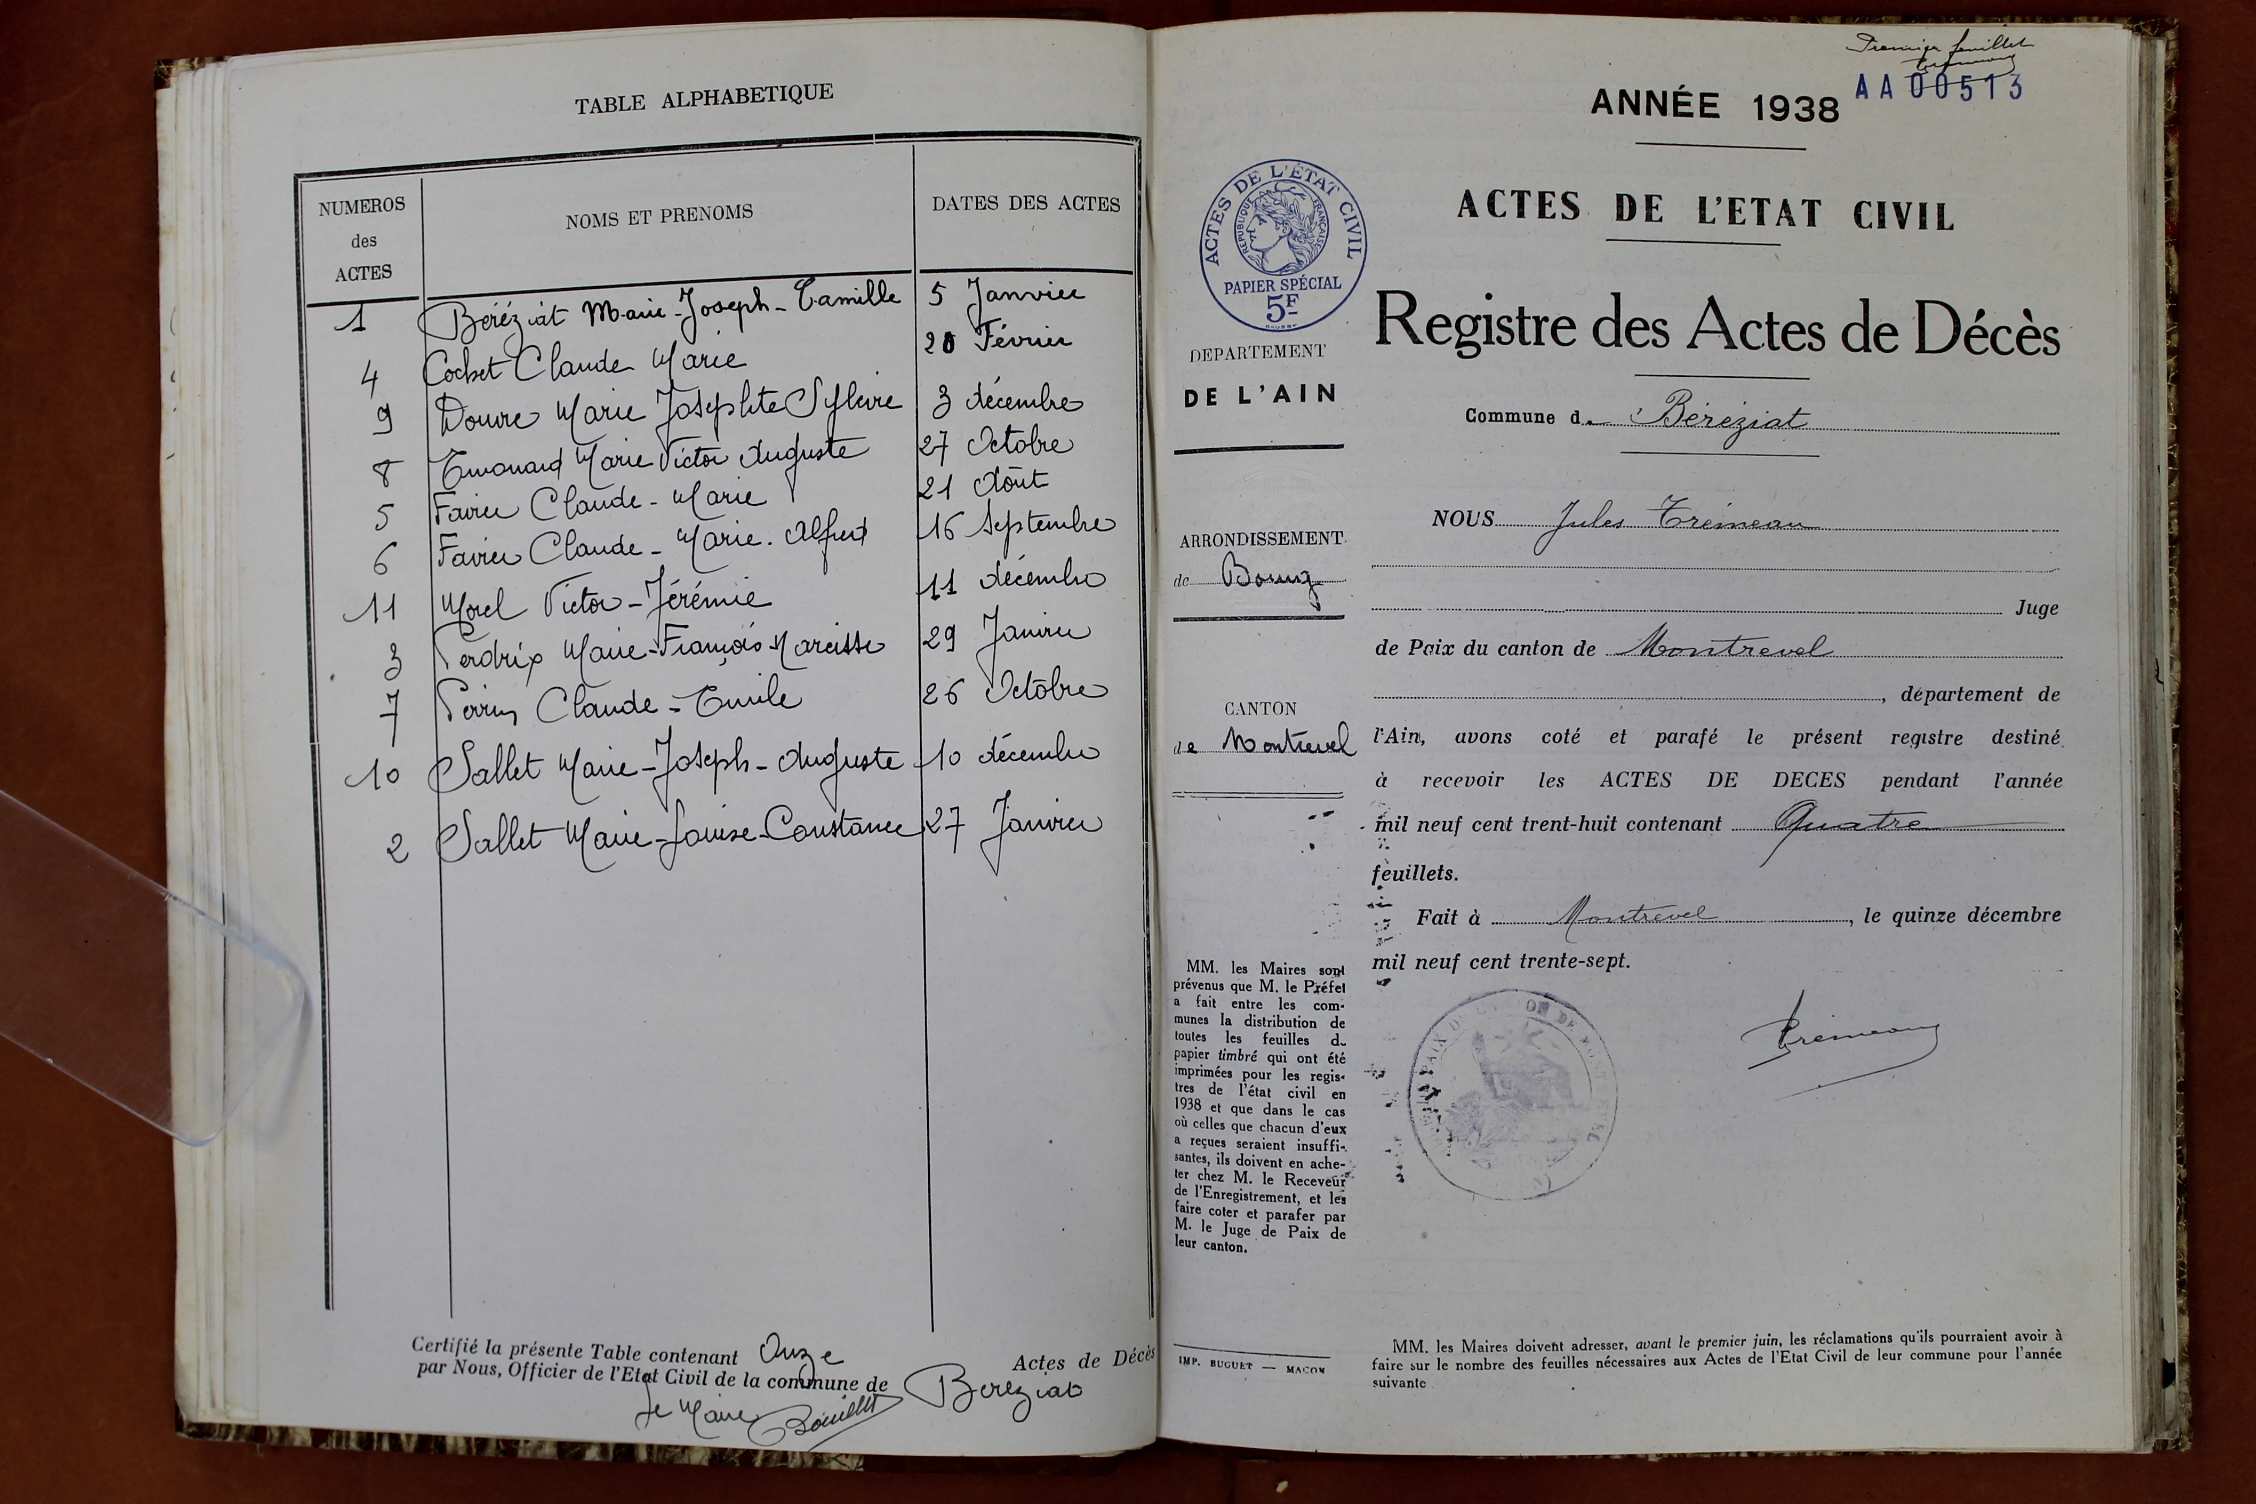 TABLE ALPHABETIQUE
NUMEROS des ACTES
NOMS ET PRENOMS
DATES DES ACTES
1 Béréziat Marie-Joseph-Camille 5 Janvier
4 Cochet Claude Marie 20 Février
9 Douvre Marie Josephte Sylvire 3 décembre
8 Emonard Marie Victor Auguste 27 Octobre
5 Favier Claude-Marie 21 Août
6 Favier Claude-Marie-Alfred 16 Septembre
11 Morel Victor-Jérémie 11 décembre
3 Perdrix Marie-François-Narcisse 29 Janvier
7 Perrin Claude-Emile 26 Octobre
10 Sallet Marie-Joseph-Auguste 10 décembre
2 Sallet Marie-Louise-Constance 27 Janvier
Certifié la présente Table contenant Onze Actes de Décès
par Nous, Officier de l'Etat Civil de la commune de Béréziat
Le Maire
Premier feuillet
AA00513
ANNÉE 1938
ACTES DE L'ETAT CIVIL
Registre des Actes de Décès
ACTES DE L'ÉTAT CIVIL
RÉPUBLIQUE FRANÇAISE
PAPIER SPÉCIAL
5F
DEPARTEMENT
DE L'AIN
ARRONDISSEMENT
de Bourg
CANTON
de Montrevel
MM. les Maires sont
prévenus que M. le Préfet
a fait entre les com-
munes la distribution de
toutes les feuilles du
papier timbré qui ont été
imprimées pour les regis-
tres de l'état civil en
1938 et que dans le cas
où celles que chacun d'eux
a reçues seraient insuffi-
santes, ils doivent en ache-
ter chez M. le Receveur
de l'Enregistrement, et les
faire coter et parafer par
M. le Juge de Paix de
leur canton.
IMP. BUGUET — MACON
Commune de Béréziat
NOUS Jules Trémeau
Juge
de Paix du canton de Montrevel
, département de
l'Ain, avons coté et parafé le présent registre destiné
à recevoir les ACTES DE DECES pendant l'année
mil neuf cent trent-huit contenant Quatre
feuillets.
Fait à Montrevel, le quinze décembre
mil neuf cent trente-sept.
Trémeau
MM. les Maires doivent adresser, avant le premier juin, les réclamations qu'ils pourraient avoir à
faire sur le nombre des feuilles nécessaires aux Actes de l'Etat Civil de leur commune pour l'année
suivante